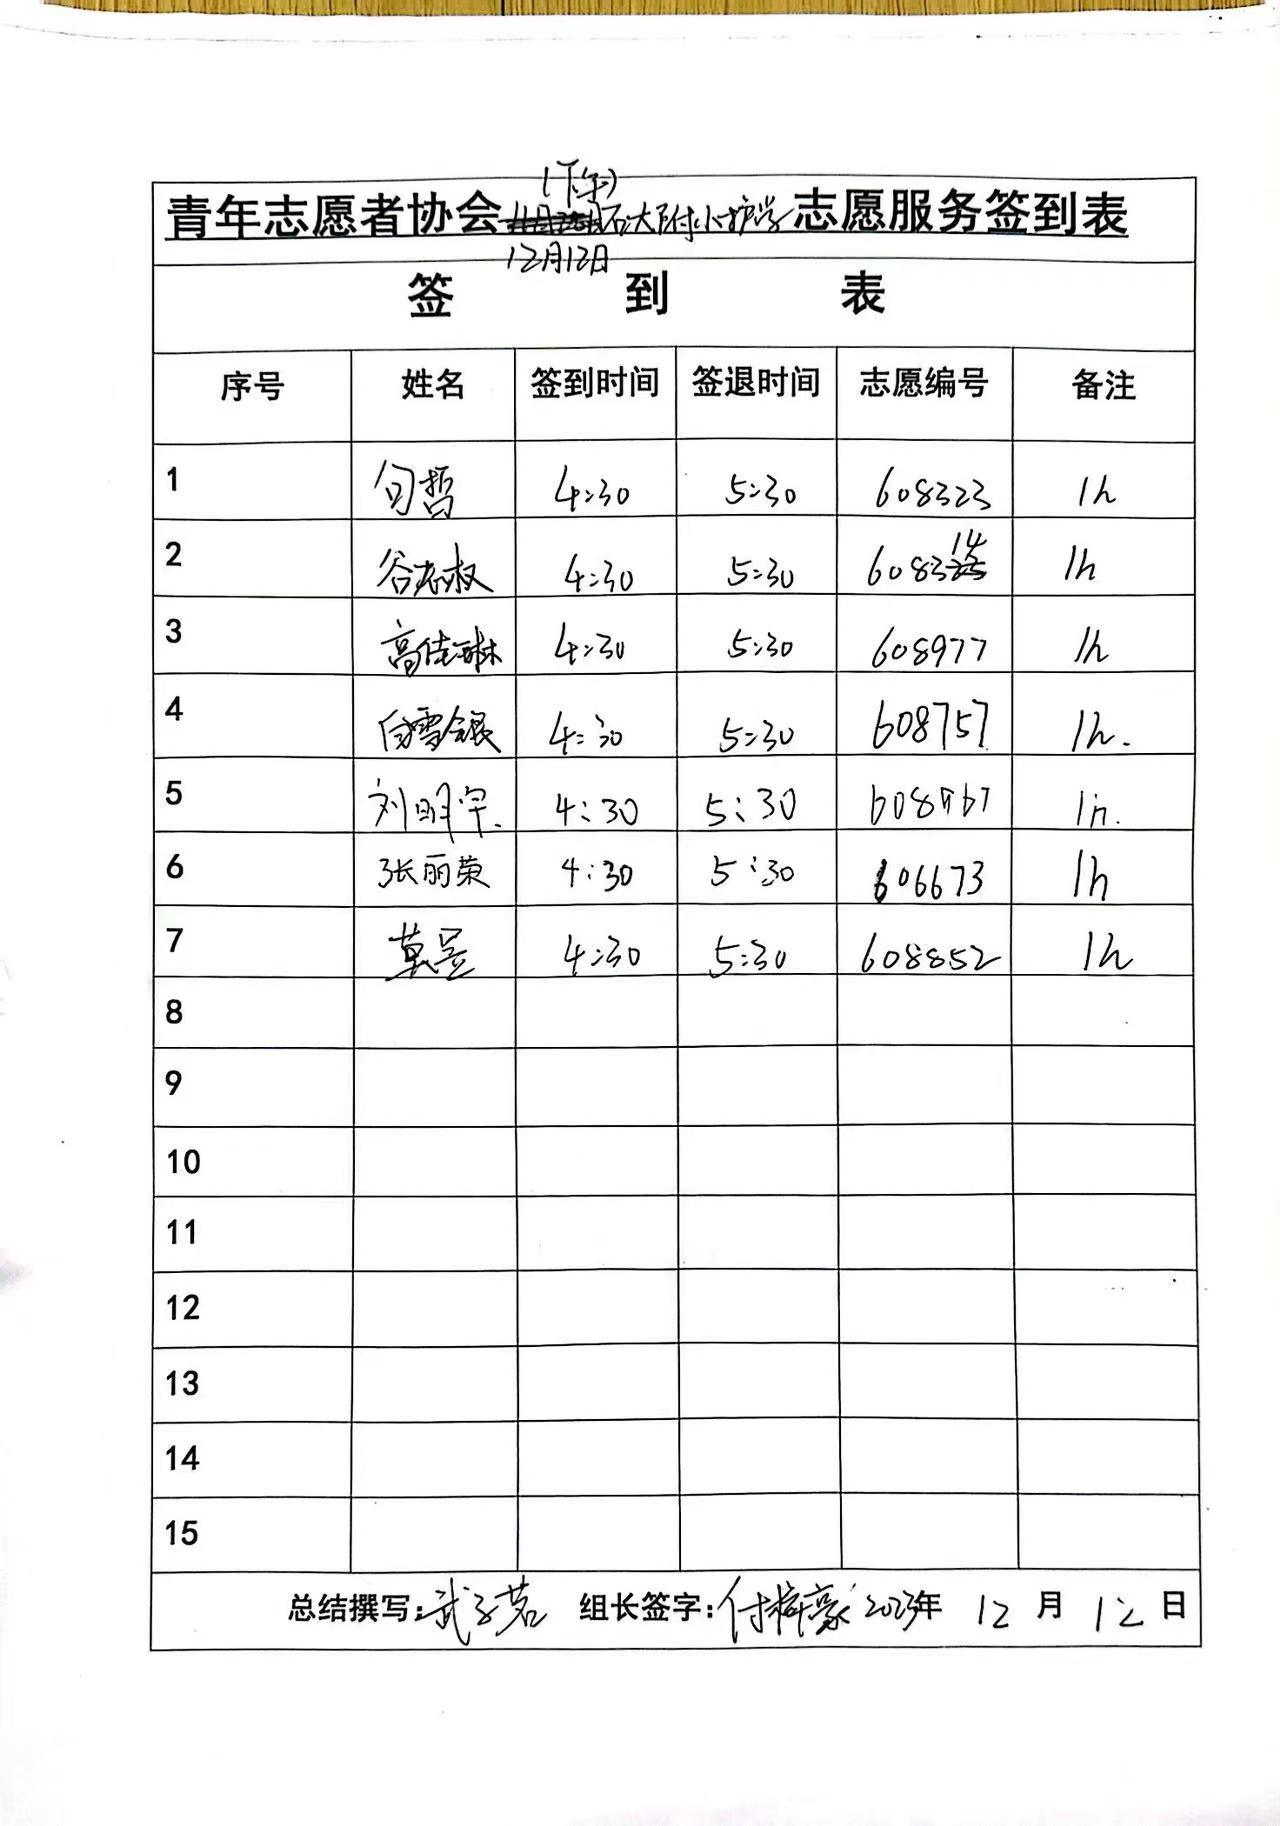 (下午)
青年志愿者协会石大附小护学志愿服务签到表
12月12日
签 到 表
序号 姓名 签到时间 签退时间 志愿编号 备注
1 旬哲 4:30 5:30 608323 1h
2 4:30 5:30 608314 1h
3 高佳琳 4:30 5:30 608977 1h
4 白雪银 4:30 5:30 608757 1h.
5 刘明宇. 4:30 5:30 1h.
6 张丽荣 4:30 5:30 606673 1h
7 莫昱 4:30 5:30 608852 1h
8
9
10
11
12
13
14
15
总结撰写:武子茗 组长签字: 2023年 12 月 12 日